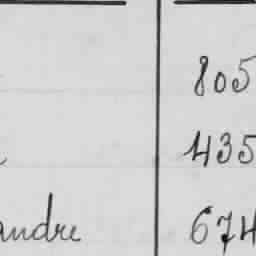 805
435
andre 674